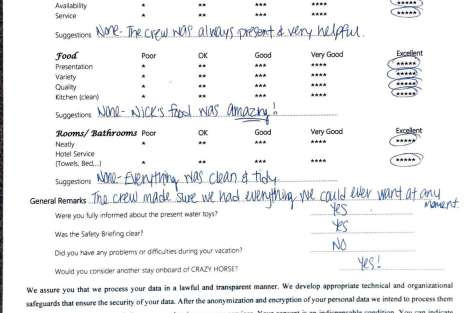 Availability * ** *** **** *****
Service * ** *** **** *****
Suggestions None - The crew was always present & very helpful.
Food Poor OK Good Very Good Excellent
Presentation * ** *** **** *****
Variety * ** *** **** *****
Quality * ** *** **** *****
Kitchen (clean) * ** *** **** *****
Suggestions None - Nick's food was amazing!
Rooms/ Bathrooms Poor OK Good Very Good Excellent
Neatly * ** *** **** *****
Hotel Service
(Towels, Bed,..) * ** *** **** *****
Suggestions None - Everything was clean & tidy
General Remarks The crew made sure we had everything we could ever want at any moment.
Were you fully informed about the present water toys? Yes
Was the Safety Briefing clear? Yes
Did you have any problems or difficulties during your vacation? NO
Would you consider another stay onboard of CRAZY HORSE? Yes!
We assure you that we process your data in a lawful and transparent manner. We develop appropriate technical and organizational
safeguards that ensure the security of your data. After the anonymization and encryption of your personal data we intend to process them